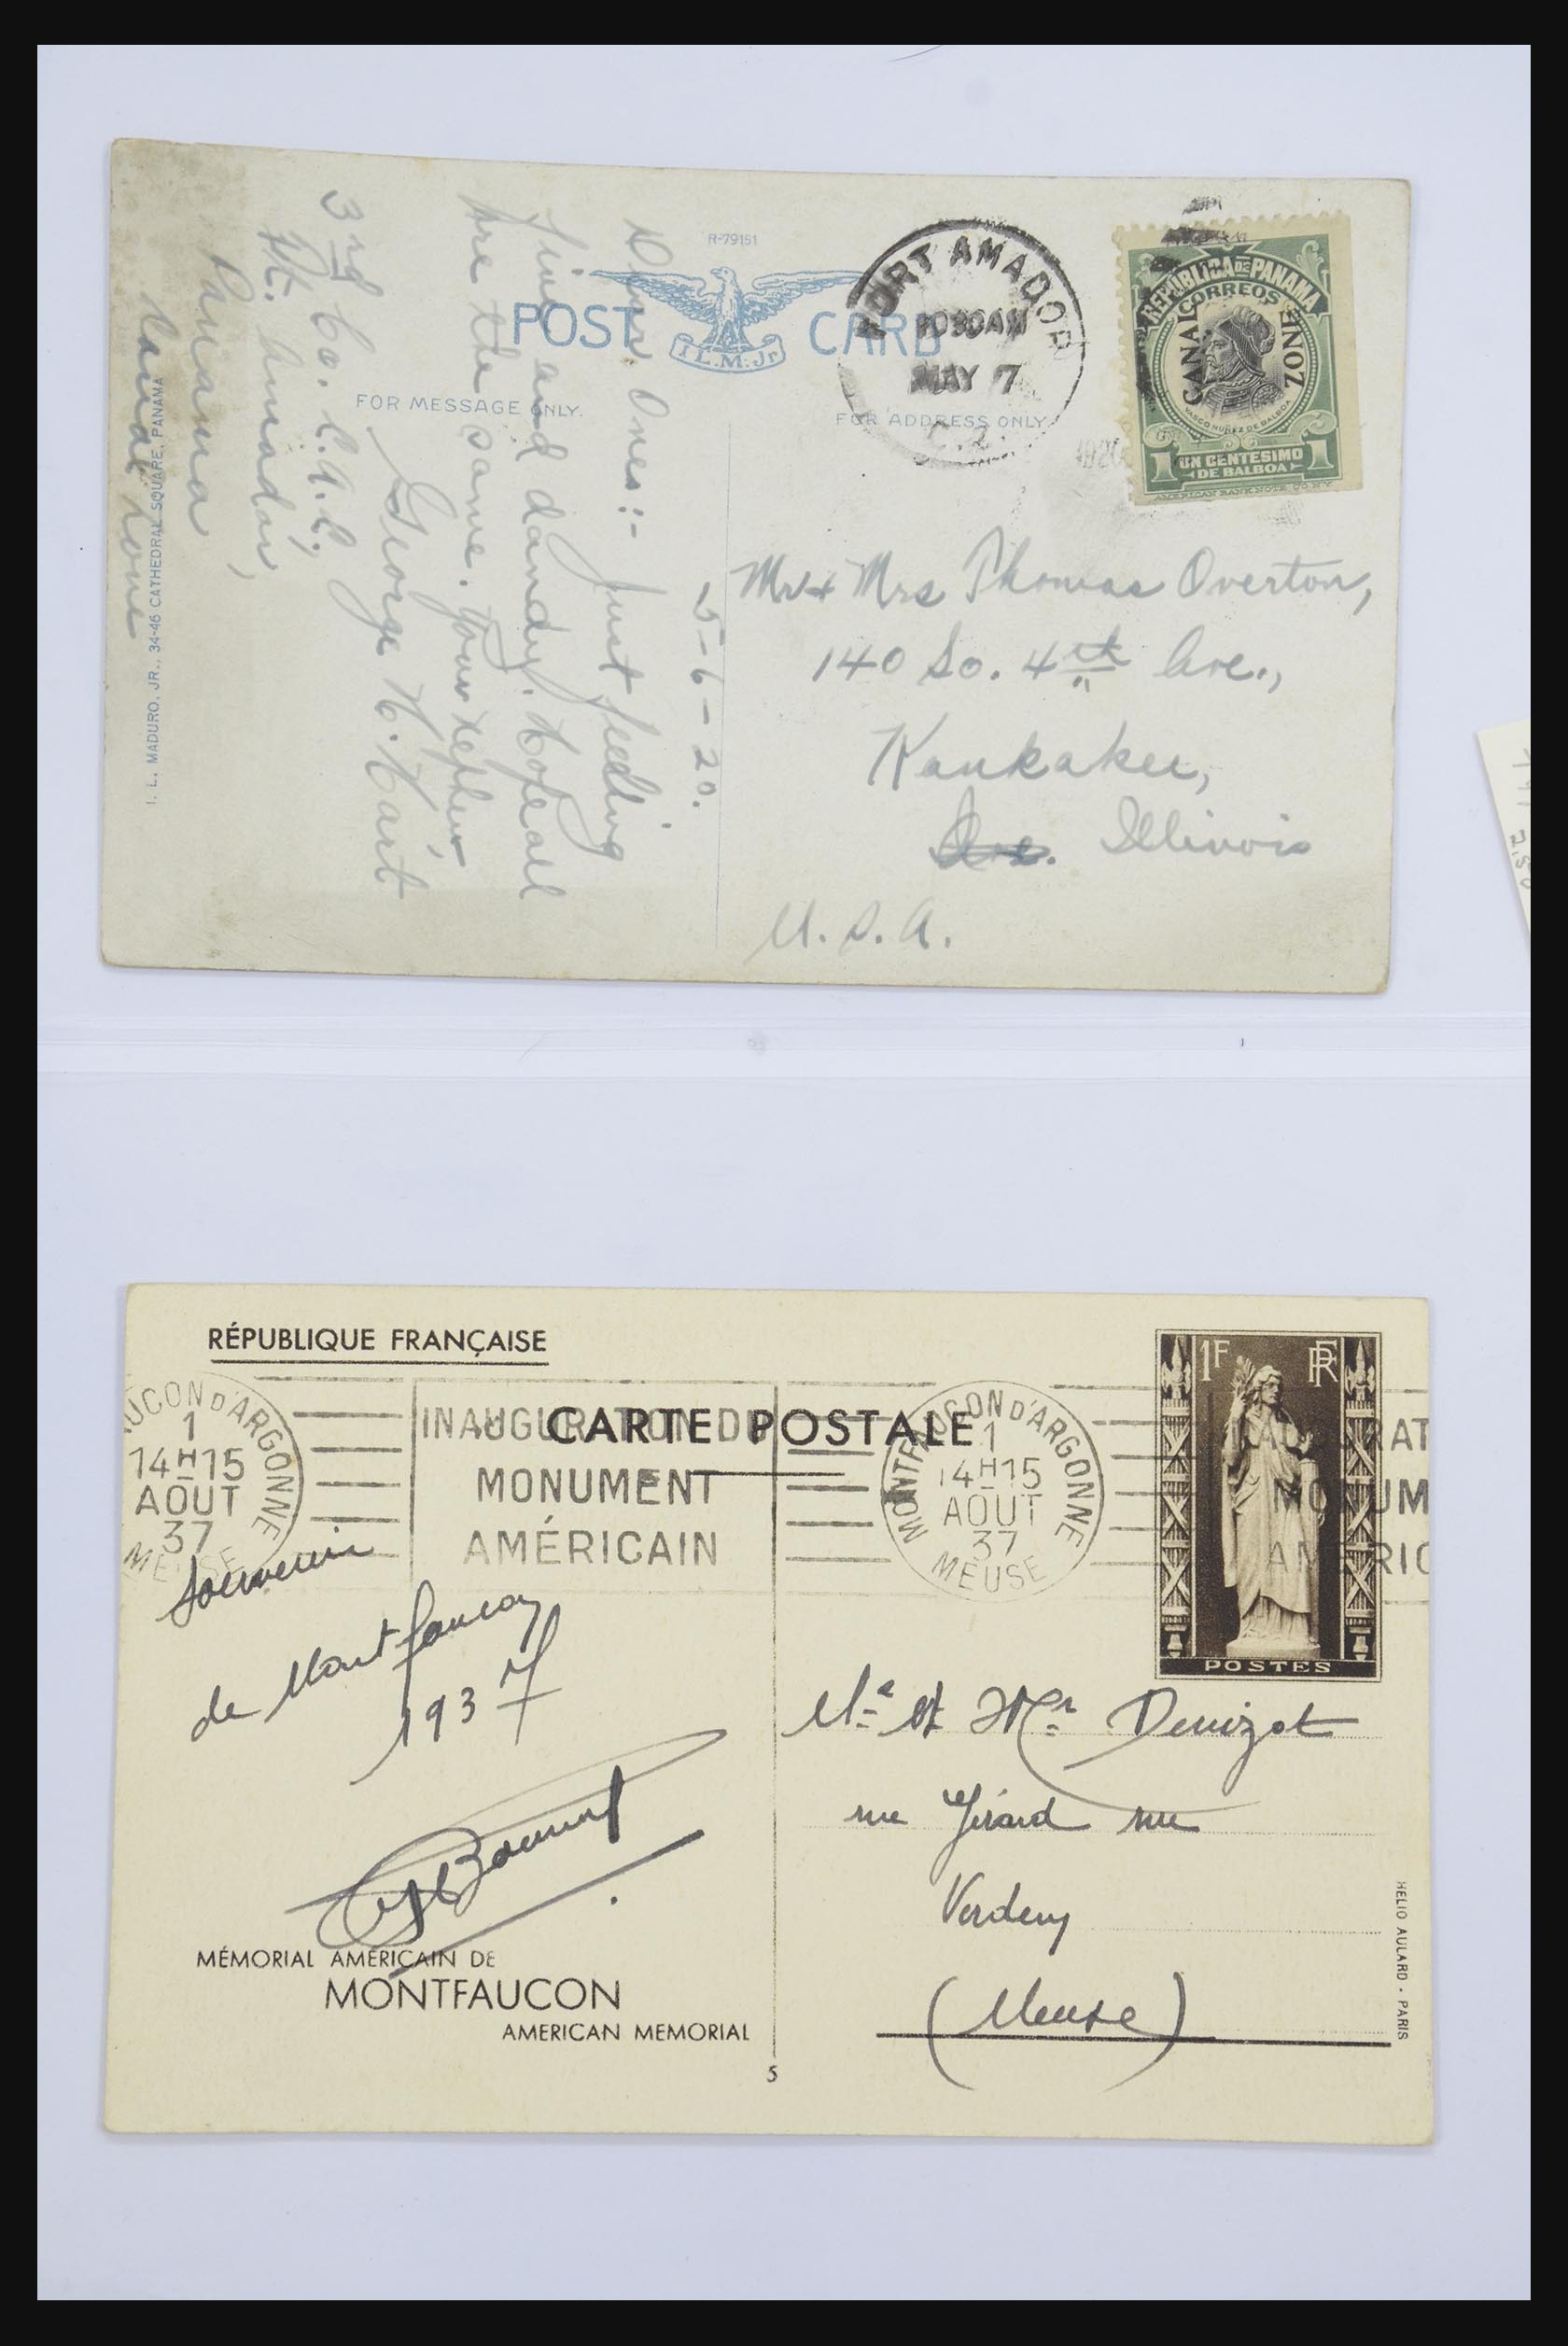 R-79151
POST CARD
I.L.M.Jr
FOR MESSAGE ONLY.
FOR ADDRESS ONLY
FORT AMADOR
1030AM
MAY 7
C.Z.
1920
REPÚBLICA DE PANAMA
CORREOS
CANAL ZONE
VASCO NUÑEZ DE BALBOA
1 UN CENTESIMO 1
DE BALBOA
AMERICAN BANK NOTE CO. N.Y.
5-6-20.
Dear Ones:- Just feeling
fine and dandy. Hope all
are the same. Your nephew,
George H. Hart
3rd Co. C.A.C.,
Ft. Amador,
Panama
Canal Zone
I. L. MADURO, JR., 34-46 CATHEDRAL SQUARE, PANAMA
Mr + Mrs Thomas Overton,
140 So. 4th Ave.,
Kankakee,
Illinois
U. S. A.
2.50
RÉPUBLIQUE FRANÇAISE
CARTE POSTALE
UCON D'ARGONNE
1
14H15
AOUT
37
MEUSE
INAUGURATION DU
MONUMENT
AMÉRICAIN
MONTFAUCON D'ARGONNE
1
14H15
AOUT
37
MEUSE
URAT
MONUM
AMÉRIC
1F RF
POSTES
Souvenir
de Montfaucon
1937
MÉMORIAL AMÉRICAIN DE
MONTFAUCON
AMERICAN MEMORIAL
5
Me et Mr Denizot
rue Gérard
Verdun
(Meuse)
HELIO AULARD - PARIS